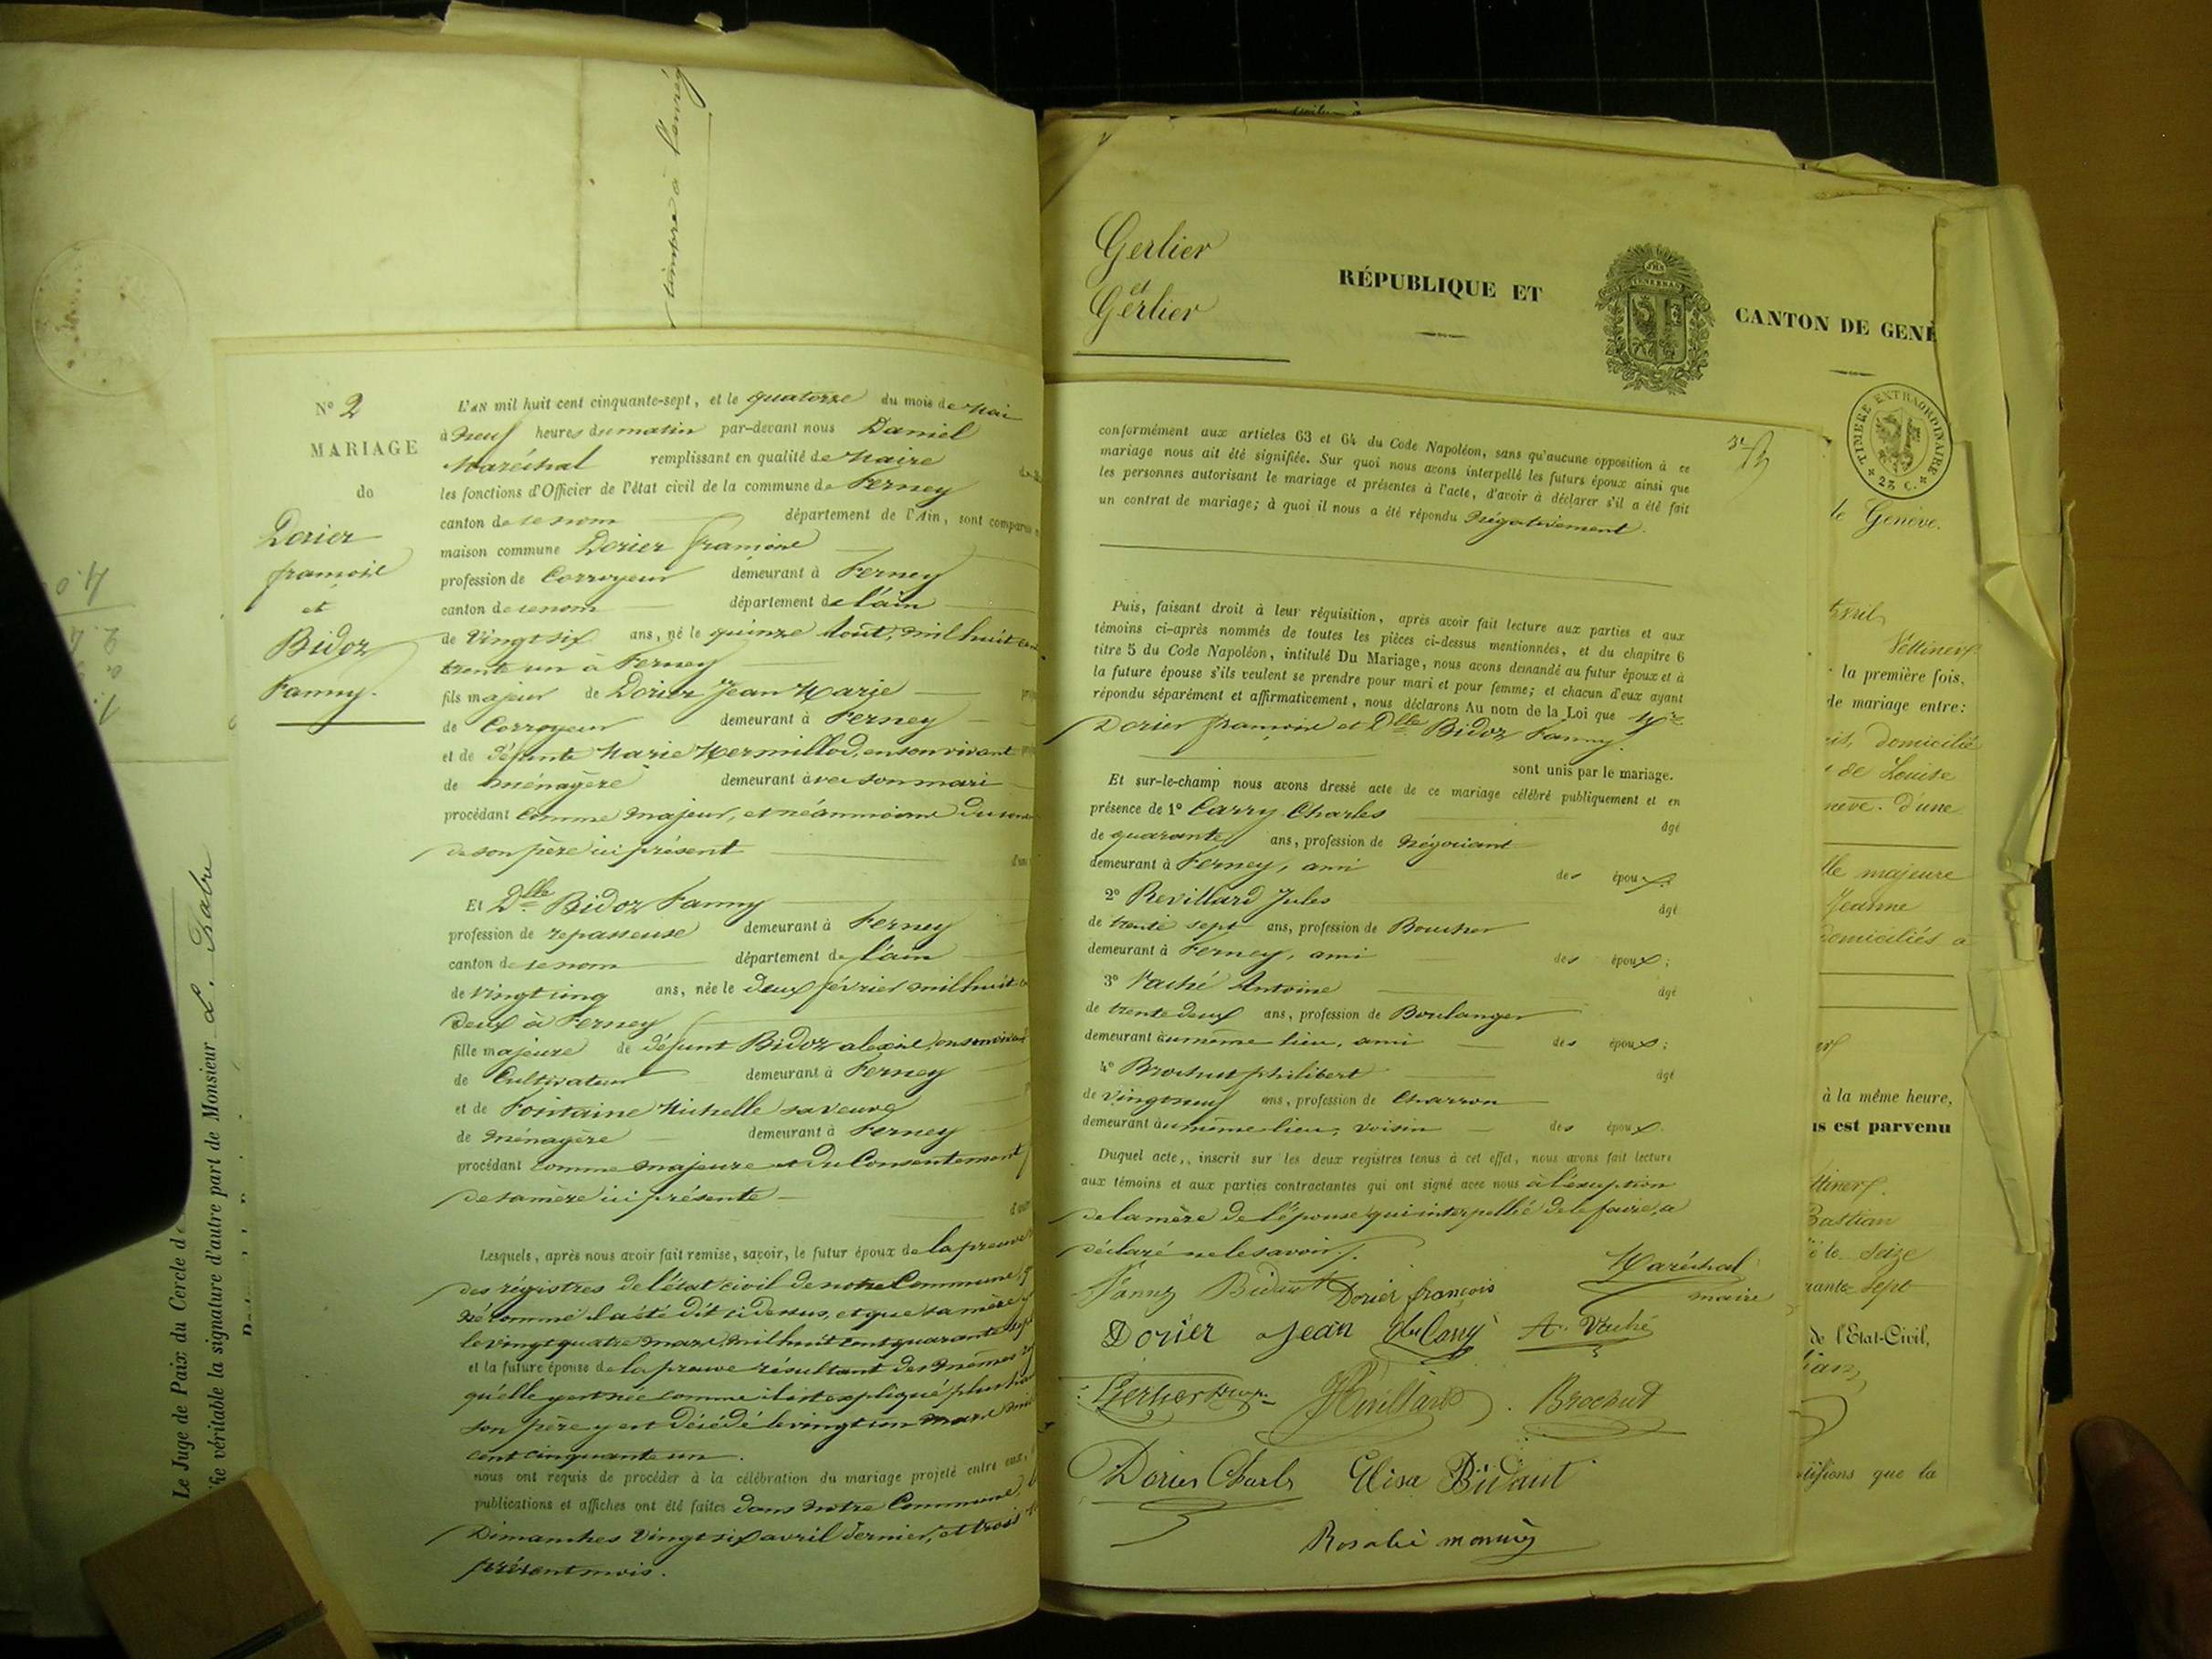 timbre à l'envers
Le Juge de Paix du Cercle d
véritable la signature d'autre part de Monsieur
N° 2
MARIAGE
de
Dorier
françois
et
Bidoz
Fanny.
L'AN mil huit cent cinquante-sept, et le quatorze du mois de Mai
à Neuf heures du matin par-devant nous Daniel
Maréchal remplissant en qualité de Maire
les fonctions d'Officier de l'état civil de la commune de Ferney
canton de ce nom département de l'Ain, sont comparus
maison commune Dorier françois
profession de Corroyeur demeurant à Ferney
canton de ce nom département de l'ain
de Vingt six ans, né le quinze Août, mil huit cent
trente un à Ferney
fils majeur de Dorier Jean Marie
de Corroyeur demeurant à Ferney
et de défunte Marie Mermillod, en son vivant
de ménagère demeurant avec son mari
procédant comme majeur, et néanmoins du
de son père ici présent
Et Dlle Bidoz Fanny
profession de repasseuse demeurant à Ferney
canton de ce nom département de l'ain
de vingt cinq ans, née le deux février mil huit
deux à Ferney
fille majeure de défunt Bidoz alexis, en son vivant
de Cultivateur demeurant à Ferney
et de Fontaine Michelle sa veuve
de ménagère demeurant à Ferney
procédant comme majeure et du Consentement
de sa mère ici présente
Lesquels, après nous avoir fait remise, savoir, le futur époux de la preuve
des régistres de l'état civil de notre Commune,
né comme il a été dit ci dessus, et que sa mère
le vingt quatre mars, mil huit cent quarante sept
et la future épouse de la preuve résultant des mêmes
qu'elle y est née comme il est expliqué plus haut
son père y est décédé le vingt un mars mil
cent cinquante un.
nous ont requis de procéder à la célébration du mariage projeté entre eux,
publications et affiches ont été faites dans notre Commune,
Dimanches Vingt six avril dernier, et trois
présent mois.
Gerlier
et
Gerlier
RÉPUBLIQUE ET CANTON DE GENÈ
TIMBRE EXTRAORDINAIRE
25 C.
conformément aux articles 63 et 64 du Code Napoléon, sans qu'aucune opposition à ce
mariage nous ait été signifiée. Sur quoi nous avons interpellé les futurs époux ainsi que
les personnes autorisant le mariage et présentes à l'acte, d'avoir à déclarer s'il a été fait
un contrat de mariage; à quoi il nous a été répondu Négativement.
Puis, faisant droit à leur réquisition, après avoir fait lecture aux parties et aux
témoins ci-après nommés de toutes les pièces ci-dessus mentionnées, et du chapitre 6
titre 5 du Code Napoléon, intitulé Du Mariage, nous avons demandé au futur époux et à
la future épouse s'ils veulent se prendre pour mari et pour femme; et chacun d'eux ayant
répondu séparément et affirmativement, nous déclarons Au nom de la Loi que
Dorier françois et Dlle Bidoz Fanny.
sont unis par le mariage.
Et sur-le-champ nous avons dressé acte de ce mariage célébré publiquement et en
présence de 1° Carry Charles âgé
de quarante ans, profession de Négociant
demeurant à Ferney, ami des époux;
2° Revillard Jules âgé
de trente sept ans, profession de Boucher
demeurant à Ferney, ami des époux;
3° Vaché Antoine âgé
de trente deux ans, profession de Boulanger
demeurant au même lieu, ami des époux;
4° Brochut philibert âgé
de vingt neuf ans, profession de Charron
demeurant au même lieu, voisin des époux.
Duquel acte, inscrit sur les deux registres tenus à cet effet, nous avons fait lecture
aux témoins et aux parties contractantes qui ont signé avec nous à l'exception
de la mère de l'épouse qui interpellé de le faire, a
déclaré ne le savoir.
Maréchal
maire
Fanny Bidaut Dorier françois
Dorier Jean Ch Carry A. Vaché
Brochut
Dorier Charls Elisa Bidaut
Rosalie monnier
de Genève.
la première fois,
de mariage entre:
domicilié
de Louise
d'une
majeure
Jeanne
domiciliés à
à la même heure,
est parvenu
Bastian
le Seize
sept
de l'Etat-Civil,
que la